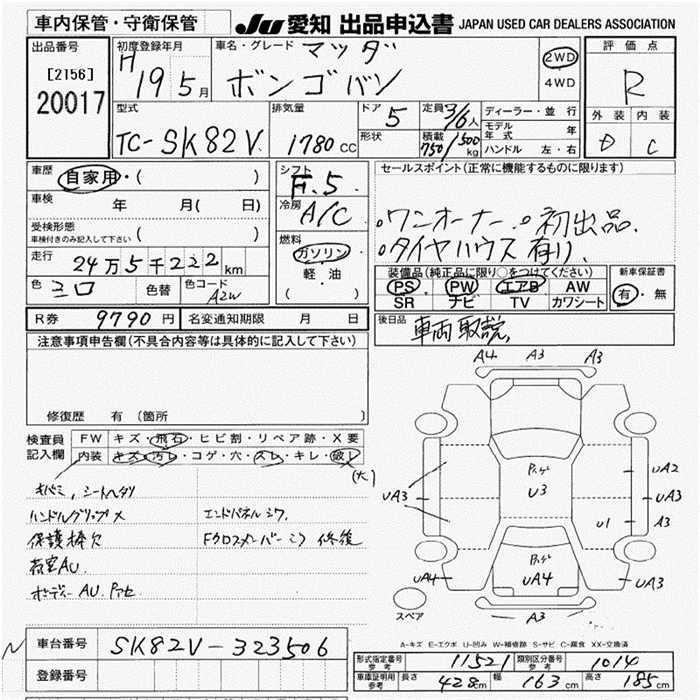 車内保管・守衛保管
JU 愛知 出品申込書 JAPAN USED CAR DEALERS ASSOCIATION
出品番号
[2156]
20017
初度登録年月
H 19 5月
車名・グレード マツダ
ボンゴバン
2WD
4WD
評価点
R
外装 内装
D C
型式
TC-SK82V
排気量
1780 CC
ドア 5
形状
定員 3/6人
積載 750/500 kg
ディーラー・並行
モデル年式 年
ハンドル 左・右
車歴 自家用・( )
車検 年 月( 日)
受検形態
車検付きのみ記入して下さい ( )
走行 24万5千222km
色 シロ 色替 色コード A2W
シフト
F.5
冷房
A/C
燃料
ガソリン
軽・油
( )
セールスポイント(正常に機能するものに限ります)
○ワンオーナー ○初出品
○タイヤハウス有り
装備品(純正品に限り○をつけてください)
PS PW エアB AW
SR ナビ TV カワシート
新車保証書
有・無
R券 9790円 名変通知期限 月 日
後日品 車両取説
注意事項申告欄(不具合内容等は具体的に記入して下さい)
修復歴 有 (箇所 )
検査員
記入欄
FW キズ・飛石・ヒビ割・リペア跡・X要
内装 キズ・汚レ・コゲ・穴・スレ・キレ・破レ
(大)
キバミ,シートヘタリ
ハンドルグリップメ エンドパネルシワ.
保護棒欠 Fクロスメンバーミラ 修復
荷室AU
ボディーAU.
A4 A3 A3
UA3 U3 UA2
UA3
U1 A3
UA4 UA4 UA3
スペア A3
A-キズ E-エクボ U-凹み W-補修跡 S-サビ C-腐食 XX-交換済
車台番号 SK82V-323506
登録番号
形式指定番号 参考 11521 類別区分番号 参考 1014
車庫証明用 参考 長さ 428cm 幅 163cm 高さ 185cm